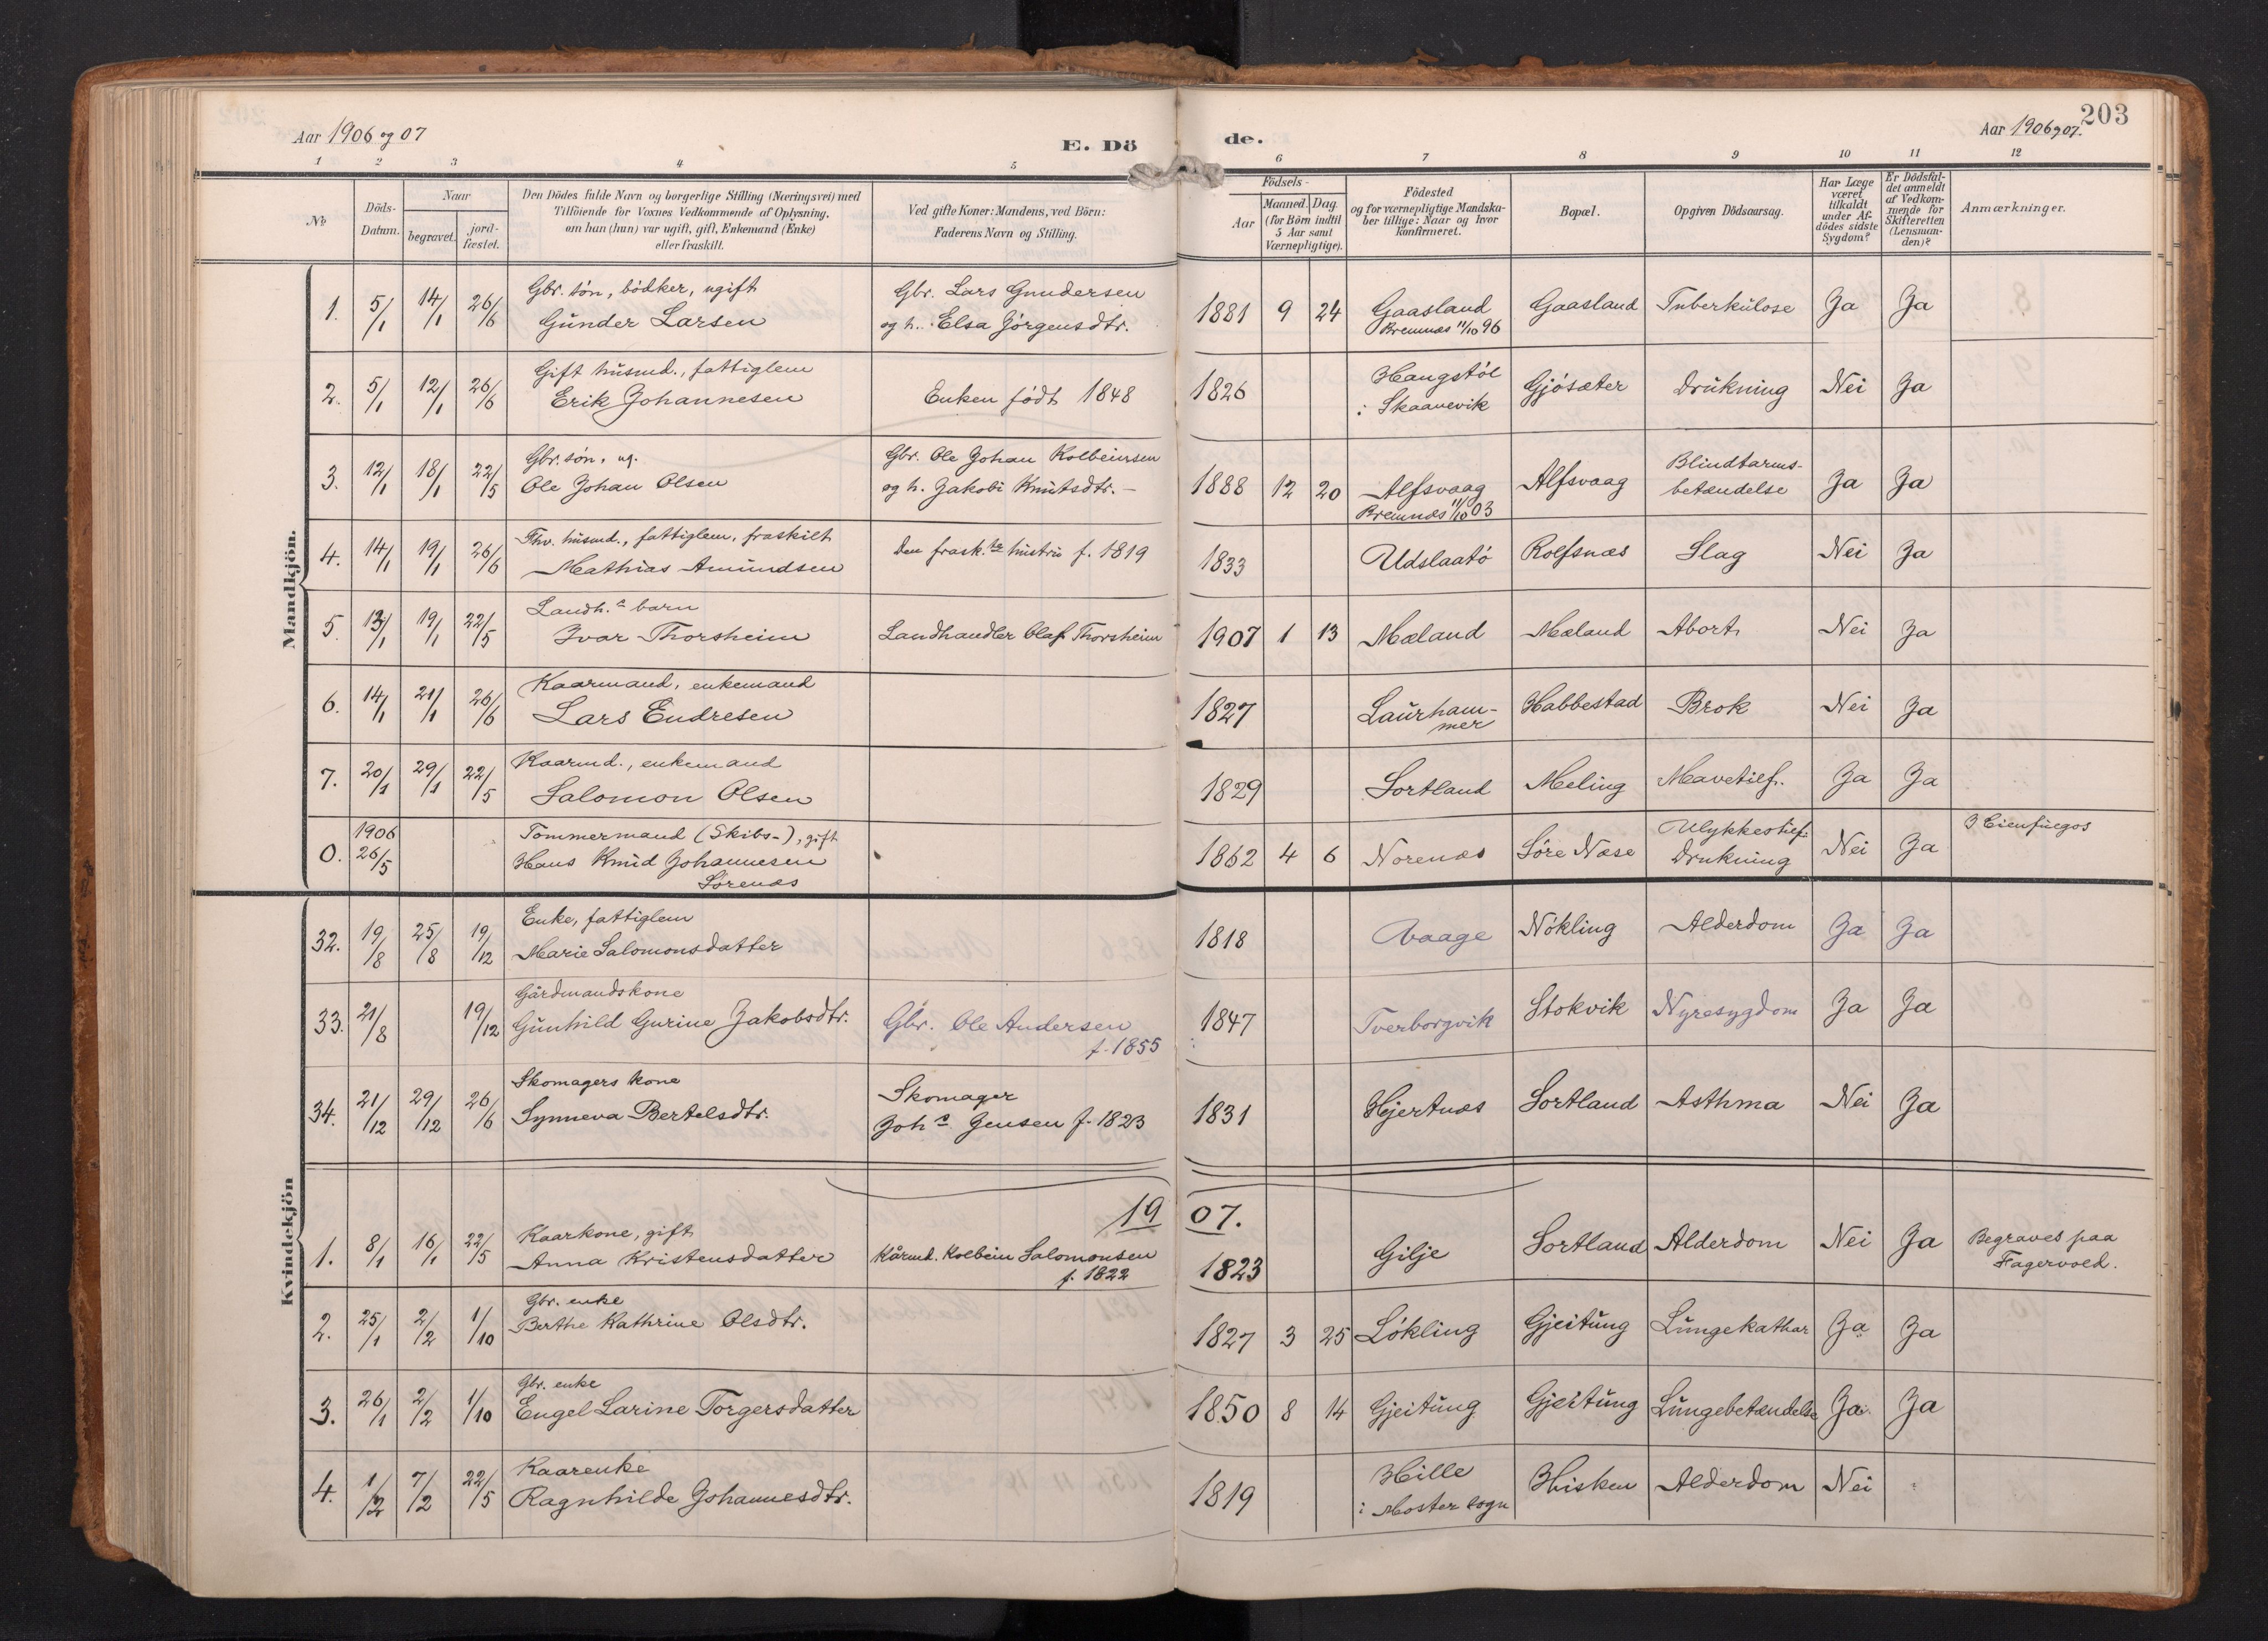 203
Aar 1906 og 07
E. Dö
de.
Aar 1906 og 07.
1 2 3 4 5 6 7 8 9 10 11 12
No
Döds-
Datum.
Naar
begravet.
jord-
fæstet.
Den Dödes fulde Navn og borgerlige Stilling (Næringsvei) med
Tilföiende for Voxnes Vedkommende af Oplysning,
om han (hun) var ugift, gift, Enkemand (Enke)
eller fraskilt.
Ved gifte Koner: Mandens, ved Börn:
Faderens Navn og Stilling.
Födsels-
Aar
Maaned.
Dag.
(for Börn indtil
5 Aar samt
Værnepligtige).
Födested
og for værnepligtige Mandska-
ber tillige: Naar og hvor
konfirmeret.
Bopæl.
Opgiven Dödsaarsag.
Har Læge
været
tilkaldt
under Af-
dödes sidste
Sygdom?
Er Dödsfal-
det anmeldt
af Vedkom-
mende for
Skifteretten
(Lensman-
den)?
Anmærkninger.
Mandkjön.
Gbr. søn, bødker, ugift
Gbr. Lars Gundersen
1. 5/1 14/1 26/6 Gunder Larsen
og h. Elsa Jørgensdtr.
1881 9 24 Gaasland Gaasland Tuberkulose Ja Ja
Bremnæs 11/10 96
Gift husmd., fattiglem
2. 5/1 12/1 26/6 Erik Johannesen Enken født 1848
1826 Haugstøl Gjøsæter Drukning Nei Ja
i Skaanevik
Gbr. søn, ug.
Gbr. Ole Johan Kolbeinsen
3. 12/1 18/1 22/5 Ole Johan Olsen
og h. Jakobi Knutsdtr.
1888 12 20 Alfsvaag Alfsvaag Blindtarms-
betændelse Ja Ja
Bremnæs 11/10 03
Fhv. husmd., fattiglem, fraskilt
4. 14/1 19/1 26/6 Mathias Amundsen Den frask.te hustru f. 1819
1833 Udslaatø Rolfsnæs Slag Nei Ja
Landh.s barn
5. 13/1 19/1 22/5 Ivar Thorsheim Landhandler Olaf Thorsheim
1907 1 13 Mæland Mæland Abort Nei Ja
Kaarmand, enkemand
6. 14/1 21/1 26/6 Lars Endresen
1827 Laurham-
mer Habbestad Brok Nei Ja
Kaarmd., enkemand
7. 20/1 29/1 22/5 Salomon Olsen
1829 Sortland Meling Mavetilf. Ja Ja
1906 Tømmermand (Skibs-), gift
0. 26/5 Hans Knud Johannesen
Sørenæs
1862 4 6 Norenæs Søre Næse Ulykkestilf:
Drukning Nei Ja I Cienfuegos
Kvindekjön
Enke, fattiglem
32. 19/8 25/8 19/12 Marie Salomonsdatter
1818 Vaage Nøkling Alderdom Ja Ja
Gårdmandskone
33. 21/8 19/12 Gunhild Gurine Jakobsdtr. Gbr. Ole Andersen
f. 1855
1847 Tverborgvik Stokvik Nyresygdom Ja Ja
Skomagers kone
34. 21/12 29/12 26/6 Synneva Bertelsdtr. Skomager
Joh.s Jensen f. 1823
1831 Hjertnæs Sortland Asthma Nei Ja
1907.
Kaarkone, gift
1. 8/1 16/1 22/5 Anna Kristensdatter Kårmd. Kolbein Salomonsen
f. 1822
1823 Gilje Sortland Alderdom Nei Ja Begraves paa
Fagervold.
Gbr. enke
2. 25/1 2/2 1/10 Berthe Kathrine Olsdtr.
1827 3 25 Løkling Gjeitung Lungekathar Ja Ja
Gbr. enke
3. 26/1 2/2 1/10 Engel Larine Torgersdatter
1850 8 14 Gjeitung Gjeitung Lungebetændelse Ja Ja
Kaarenke
4. 1/2 7/2 22/5 Ragnhilde Johannesdtr.
1819 Hille Hisken Alderdom Nei
i Moster sogn